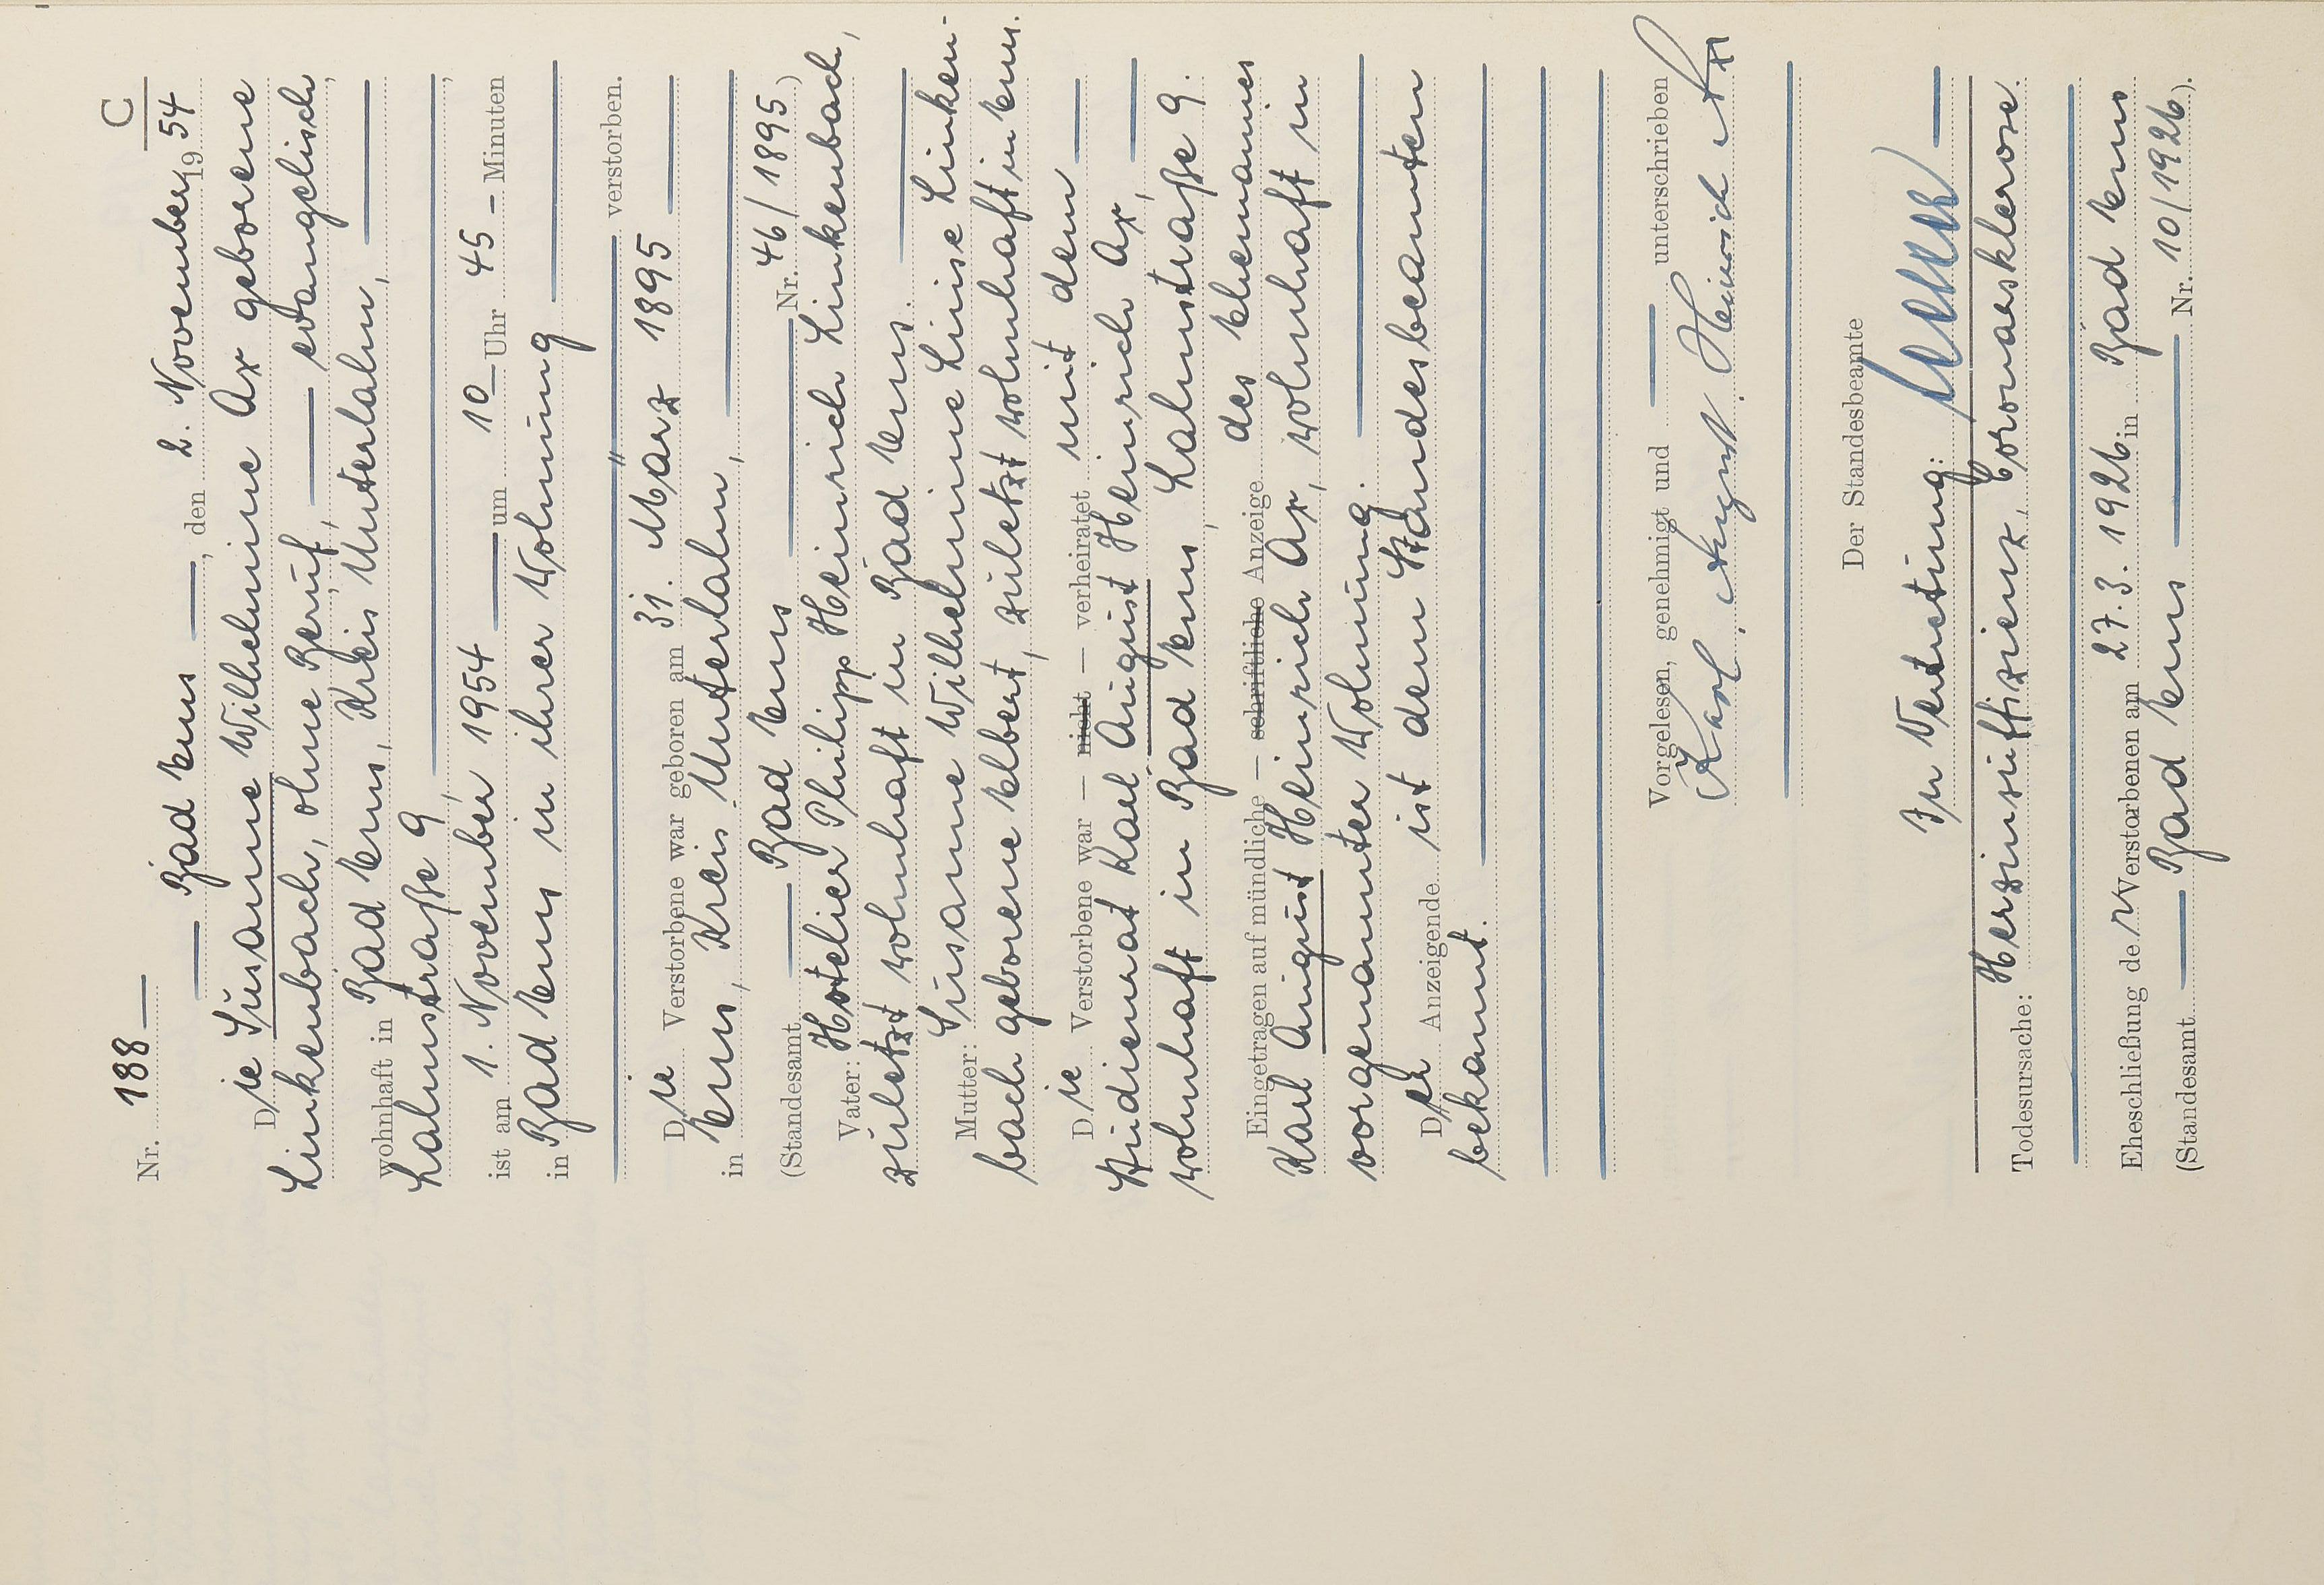 C
Nr. 188
Bad Ems, den 2. November 1954
Die Susanne Wilhelmine Ax geborene
Linkenbach, ohne Beruf, evangelisch,
wohnhaft in Bad Ems, Kreis Unterlahn,
Lahnstraße 9,
ist am 1. November 1954 um 10 Uhr 45 Minuten
in Bad Ems in ihrer Wohnung
verstorben.
Die Verstorbene war geboren am 31. März 1895
in Ems, Kreis Unterlahn,
(Standesamt Bad Ems Nr. 46/1895)
Vater: Hotelier Philipp Heinrich Linkenbach,
zuletzt wohnhaft in Bad Ems.
Mutter: Susanne Wilhelmine Luise Linken-
bach geborene Elbert, zuletzt wohnhaft in Ems.
Die Verstorbene war — nicht — verheiratet mit dem
Studienrat Karl August Heinrich Ax,
wohnhaft in Bad Ems, Lahnstraße 9.
Eingetragen auf mündliche — schriftliche Anzeige des Ehemannes
Karl August Heinrich Ax, wohnhaft in
vorgenannter Wohnung.
Der Anzeigende ist dem Standesbeamten
bekannt.
Vorgelesen, genehmigt und unterschrieben
Karl August Heinrich Ax
Der Standesbeamte
In Vertretung:
Todesursache: Herzinsuffizienz, Coronarsklerose.
Eheschließung der Verstorbenen am 27.3.1926 in Bad Ems
(Standesamt Bad Ems Nr. 10/1926).